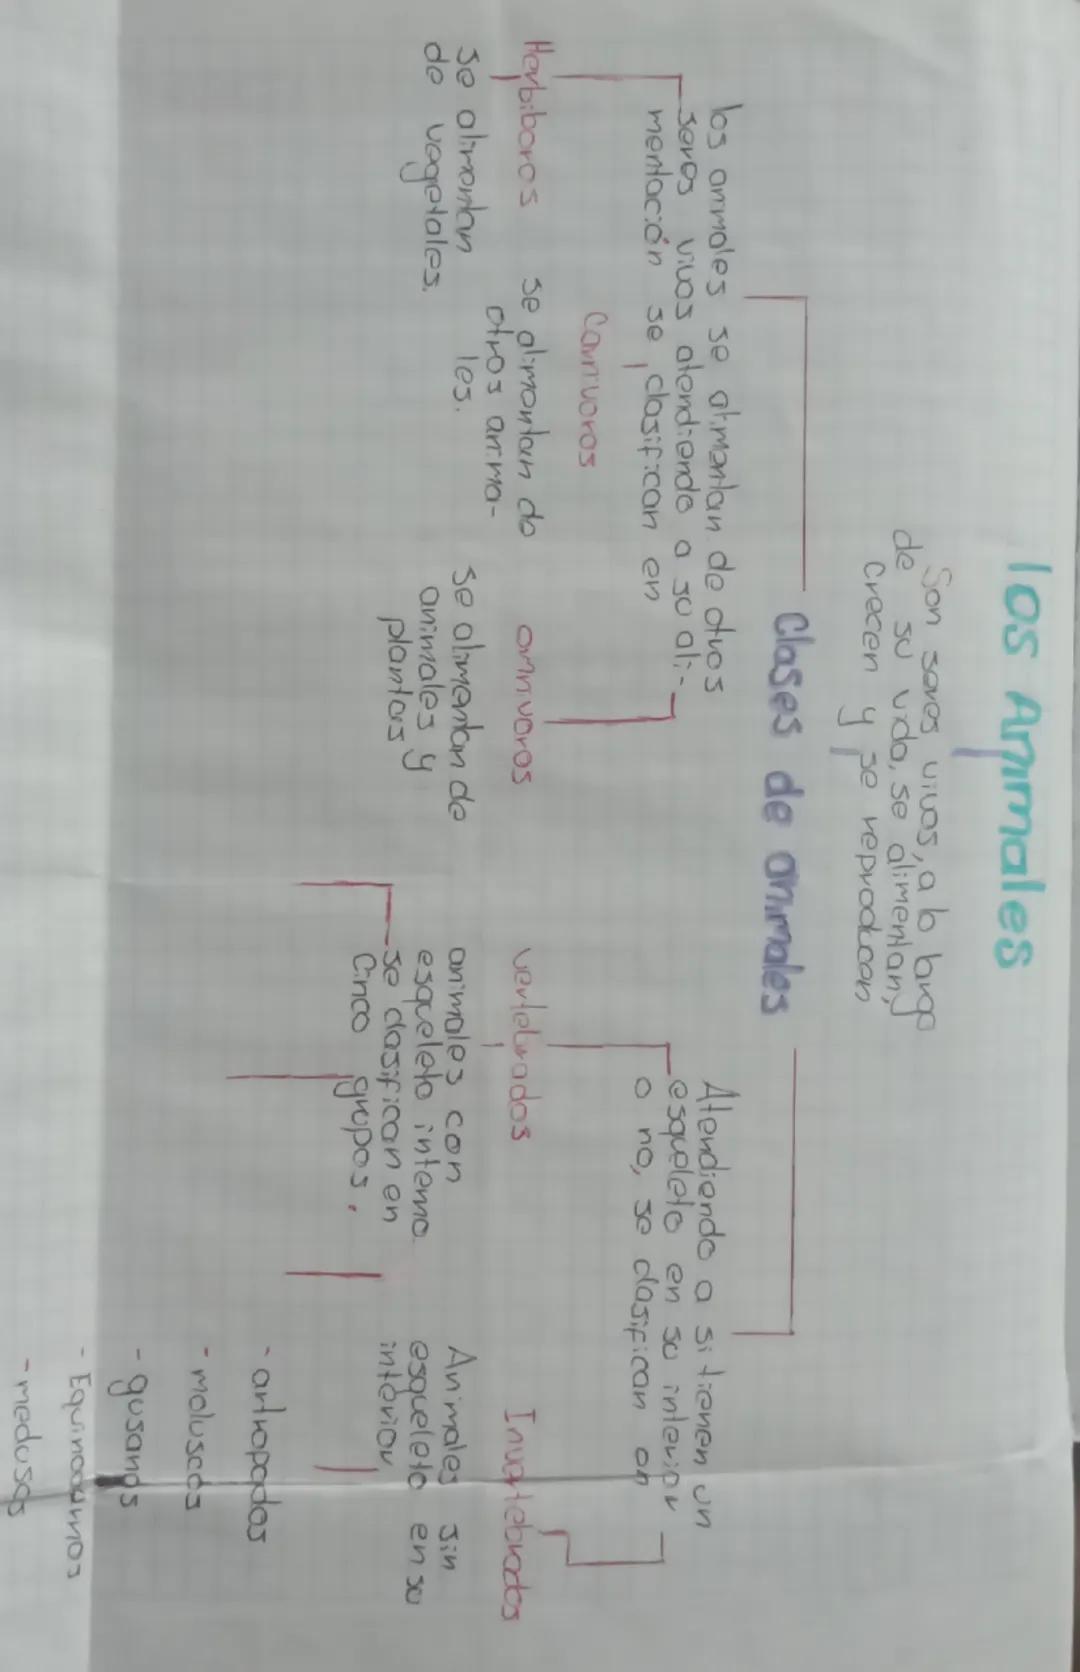 los Animales
Son seres vivos, a lo largo
de su vida, se alimentan,
crecen y se reproducen
Clases de animales
los animales se alimentan de otros
seres vivos atendiendo a su ali-
mentación se clasifican en
Herbiboros
se alimentan
de vegetales.
Carnivoros
se alimentan de
otros anima-
les.
omnivoros
se alimentan de
animales y
plantas
Atendiendo a si tienen un
esqueleto en su interior
o no, se clasifican en
vertebrados
animales con
esqueleto interno
se clasifican en
Cinco grupos.
Invertebrados
Animales sin
esqueleto en su
interior
- artropodos
- moluscos
- gusanos
- Equinodermos
- medusas